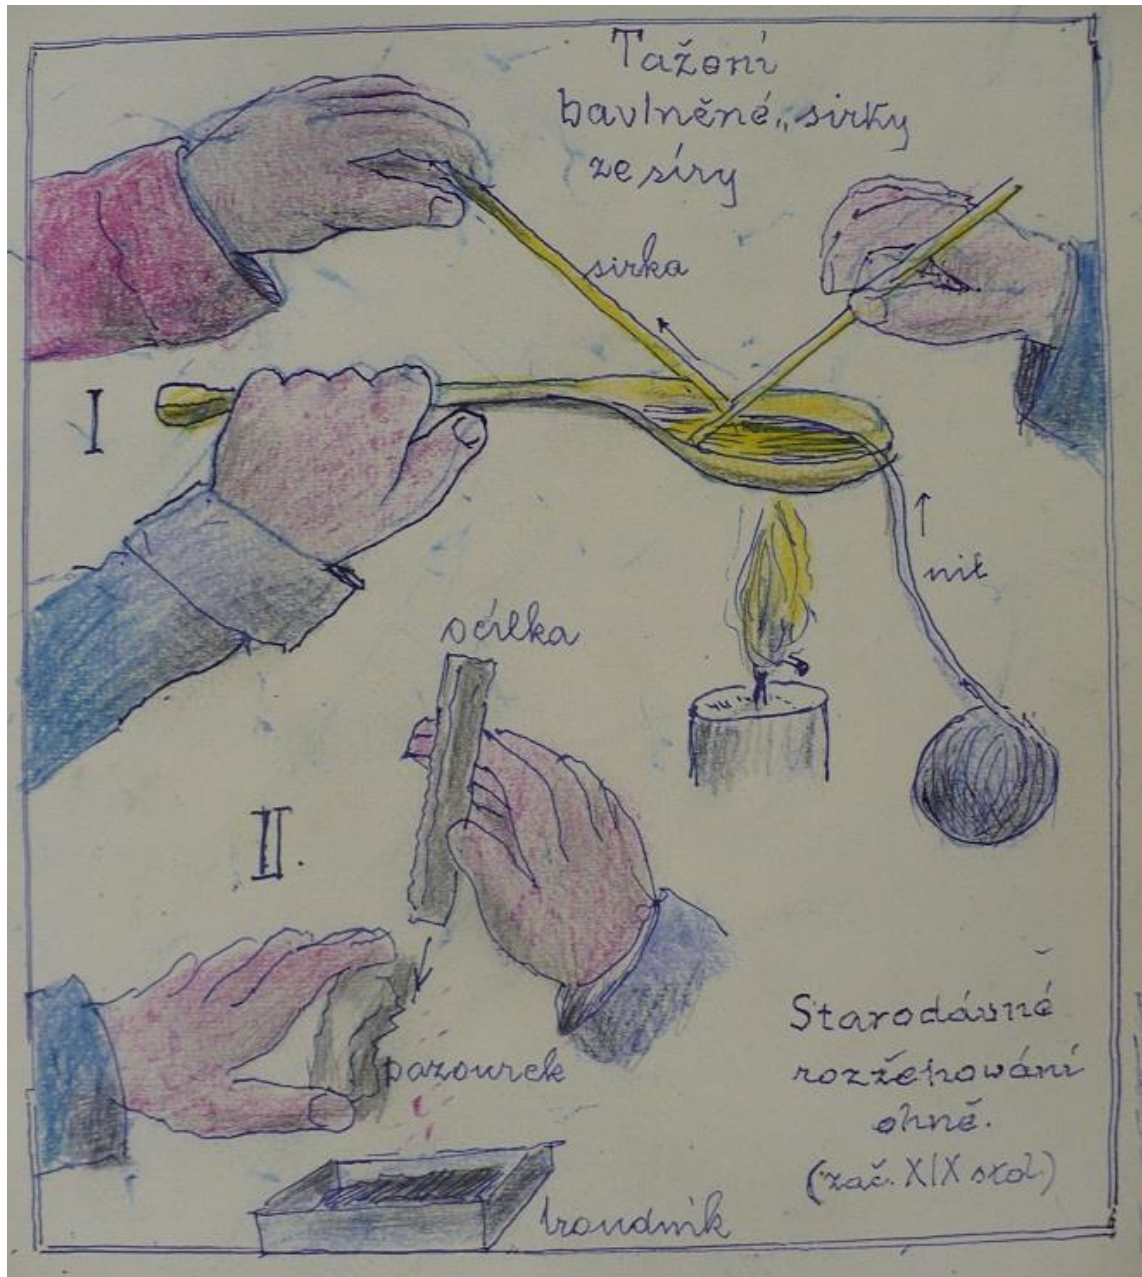 Tažení
bavlněné „sirky
ze síry
sirka
I
nit
ocílka
II.
pazourek
Starodávné
rozžehování
ohně.
(zač. XIX stol.)
troudník